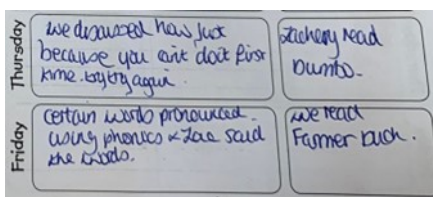 Thursday
we discussed how just
because you cant do it first
time. try try again.
Zachery read
Dumbo.
Friday
certain words pronounced.
using phonics & Zac said
the words.
we read
Farmer Duck.